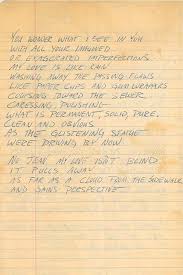 YOU WONDER WHAT I SEE IN YOU
WITH ALL YOUR IMAGINED
OR EXAGGERATED IMPERFECTIONS
MY LOVE IS LIKE RAIN
WASHING AWAY THE PASSING FLAWS
LIKE PAPER CUPS AND GUM WRAPPERS
COURSING TOWARD THE SEWER
CARESSING POLISHING
WHAT IS PERMANENT, SOLID, PURE,
CLEAN AND OBVIOUS
AS THE GLISTENING STATUE
WE'RE DRIVING BY NOW
NO DEAR MY LOVE ISN'T BLIND
IT PULLS AWAY
AS FAR AS A CLOUD FROM THE SIDEWALK
AND GAINS PERSPECTIVE